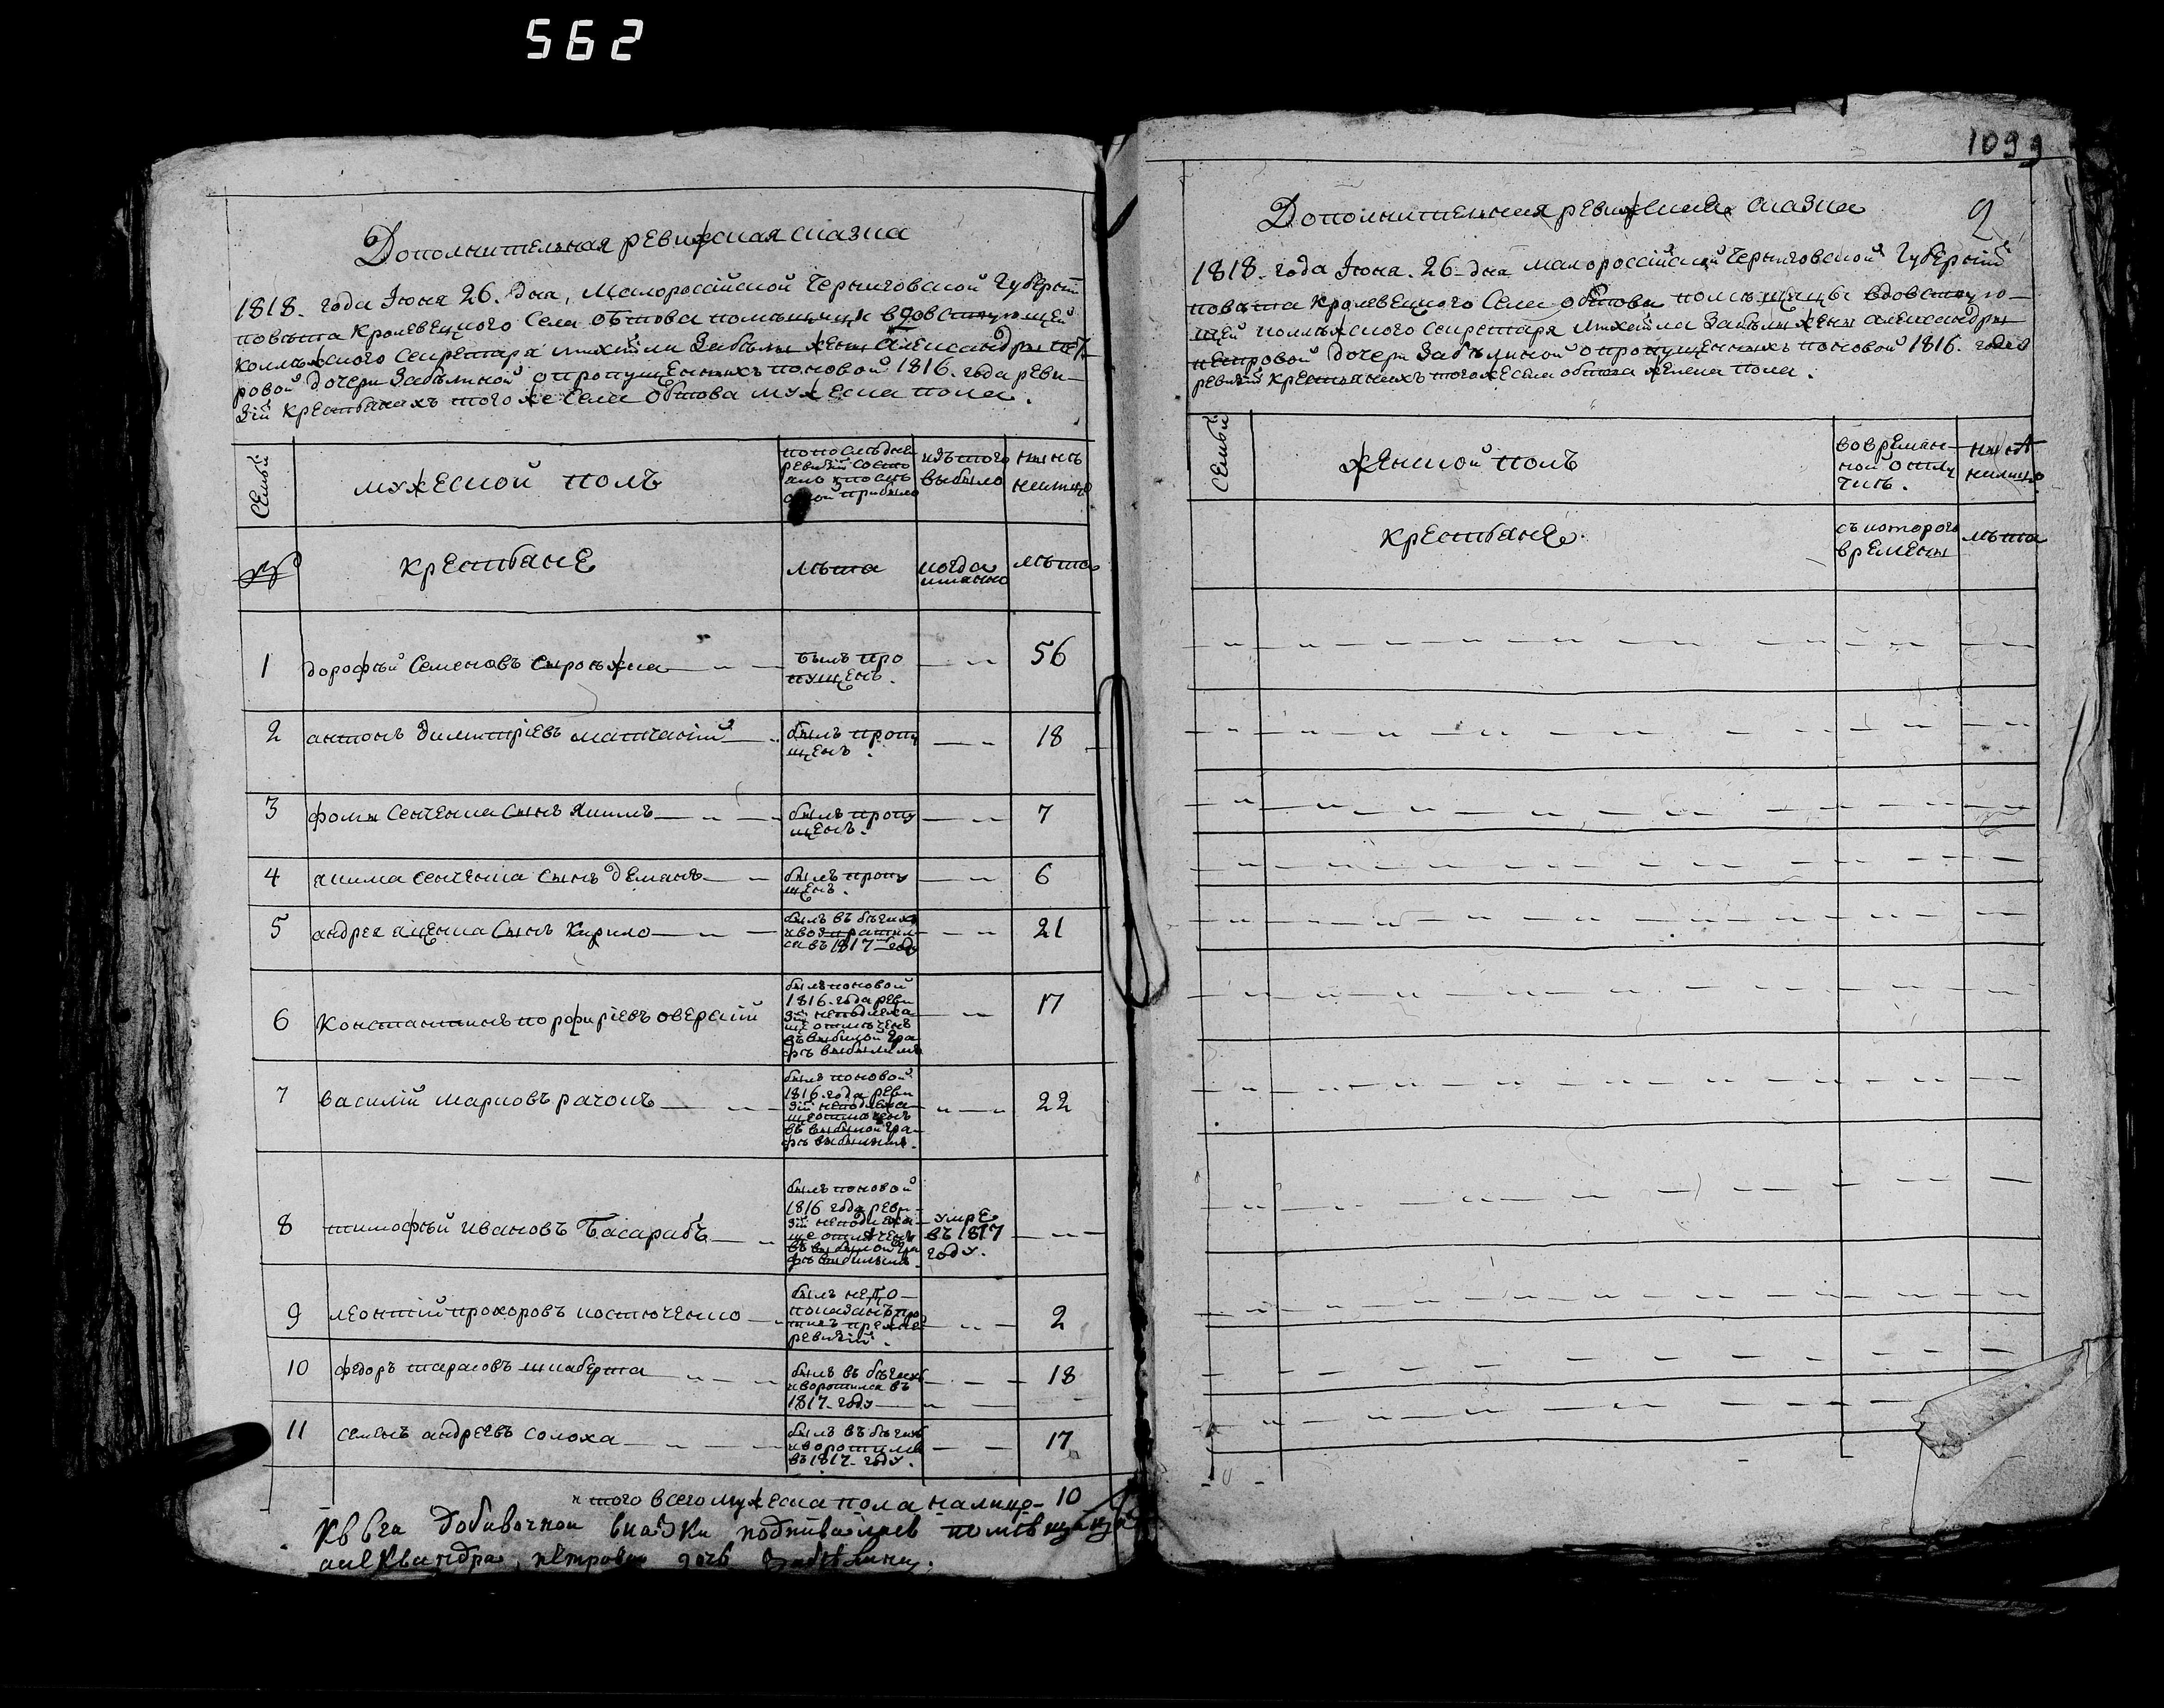 562
Дополнительная ревижская сказка
1818. года Іюня 26. дня, Малороссійской Черниговской Губерніи
повѣта Кролевецкого Села обтова помѣщици вдовствующей
коллѣжского Секретаря михаила Забѣлы жены Александры пет
ровой дочери Забѣлиной опропущенныхъ поновой 1816. года реви
зіи крестьянахъ того же Села обтова мужеска пола.
Семьи
мужеской полъ
попослѣдней
ревизіи состо
яло и послѣ
оной прибыло
изъ того
выбыло
нынѣ
налицо
№
крестьяне
лѣта
когда
имянно
лѣта
1 дорофѣй Семеновъ Сыроѣжка был про 56
пущенъ.
2 антонъ димитріевъ был пропу 18
щенъ.
3 фомы Сенченка Сынъ Якимъ был пропу 7
щенъ.
4 якима сенченка Сынъ демянъ был пропу 6
щенъ.
5 андрея яценка Сынъ Кирило был въ бѣгахъ 21
ивозвратил
ся въ 1817 году
6 Константинъ порфиріевъ оверскій 17
былъ поновой
1816. года реви
зіи неподлежа
ще отмѣченъ
въ выбылой гра
фѣ выбылимъ
7 василій марковъ рачокъ 22
былъ поновой
1816. года реви
зіи неподлежа
ще отмѣченъ
въ выбылой гра
фѣ выбылимъ.
8 тимофѣй ивановъ Басарабъ
былъ поновой
1816 года реви
зіи неподлежа
ще отмѣченъ
въ выбылой гра
фѣ выбылимъ.
умре
въ 1817
году.
9 леонтій прохоровъ костюченко 2
былъ не
показанъ
прежней
ревизіи.
10 федоръ тарасовъ шкаберта 18
былъ въ бѣгахъ
иворотился въ
1817. году
11 семенъ андреевъ солоха 17
былъ въ бѣгахъ
иворотился
въ 1817. году.
итого всего мужеска пола налицо 10
Къ сей добавочной сказки подписалась помѣщица
александра петровна дочь Забѣлина.
1099
2
Дополнительная ревижская сказка
1818. года Іюня. 26. дня малороссійской Черниговской Губерніи
повѣта Кролевецкого Села обтова помѣщици вдовствую
щей коллѣжского секретаря михаила Забѣлы жены александры
петровой дочери Забѣлиной опропущенныхъ поновой 1816. года
ревизіи крестьянкахъ того же Села обтова женска пола.
Семьи
женской полъ
вовремян
ной отлу
чкѣ.
нынѣ
налицо.
крестьяне
съ которого
времены
лѣта